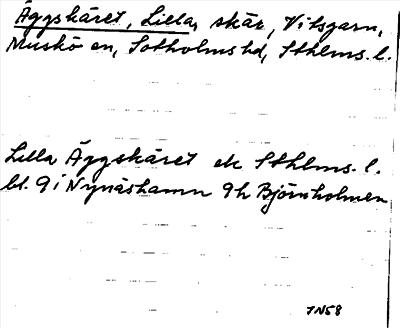 Äggskäret, Lilla, skär, Vitsgarn,
Muskö sn, Sotholms hd, Sthlms. l.
Lilla Äggskäret ek Sthlms. l.
bl. 9 i Nynäshamn 9h Björnholmen
1N58